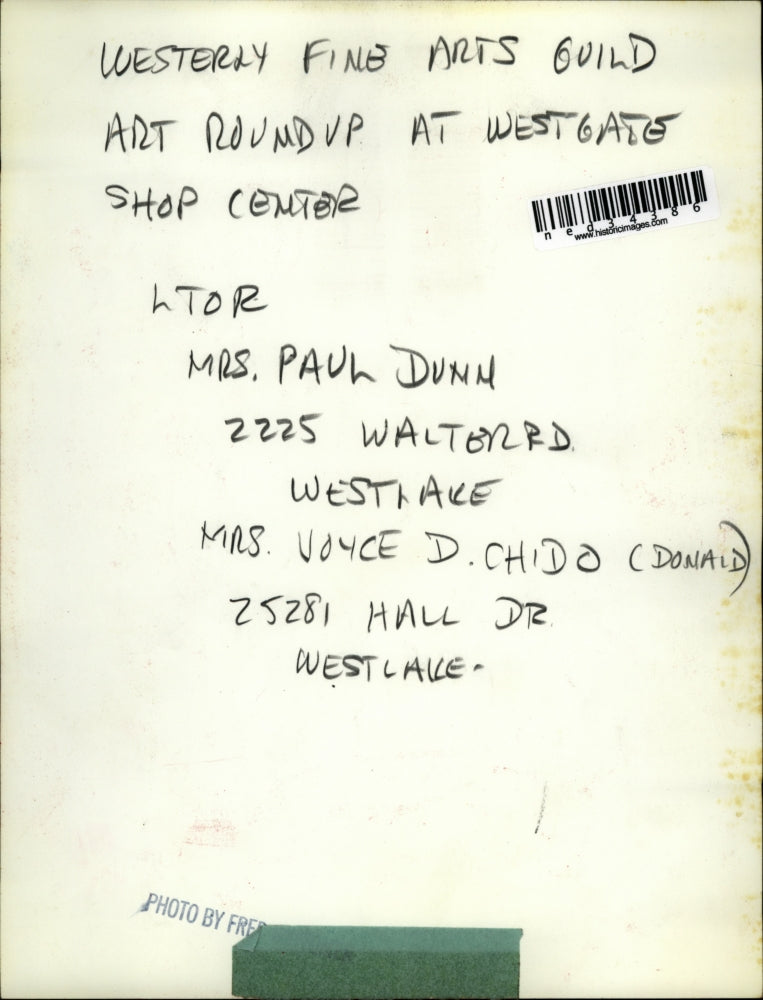 WESTERLY FINE ARTS GUILD
ART ROUNDUP AT WESTGATE
SHOP CENTER
ned34386
www.historicimages.com
L TO R
MRS. PAUL DUNN
2225 WALTER RD.
WESTLAKE
MRS. VOYCE D. CHIDO (DONALD)
25281 HALL DR.
WESTLAKE.
PHOTO BY FRED